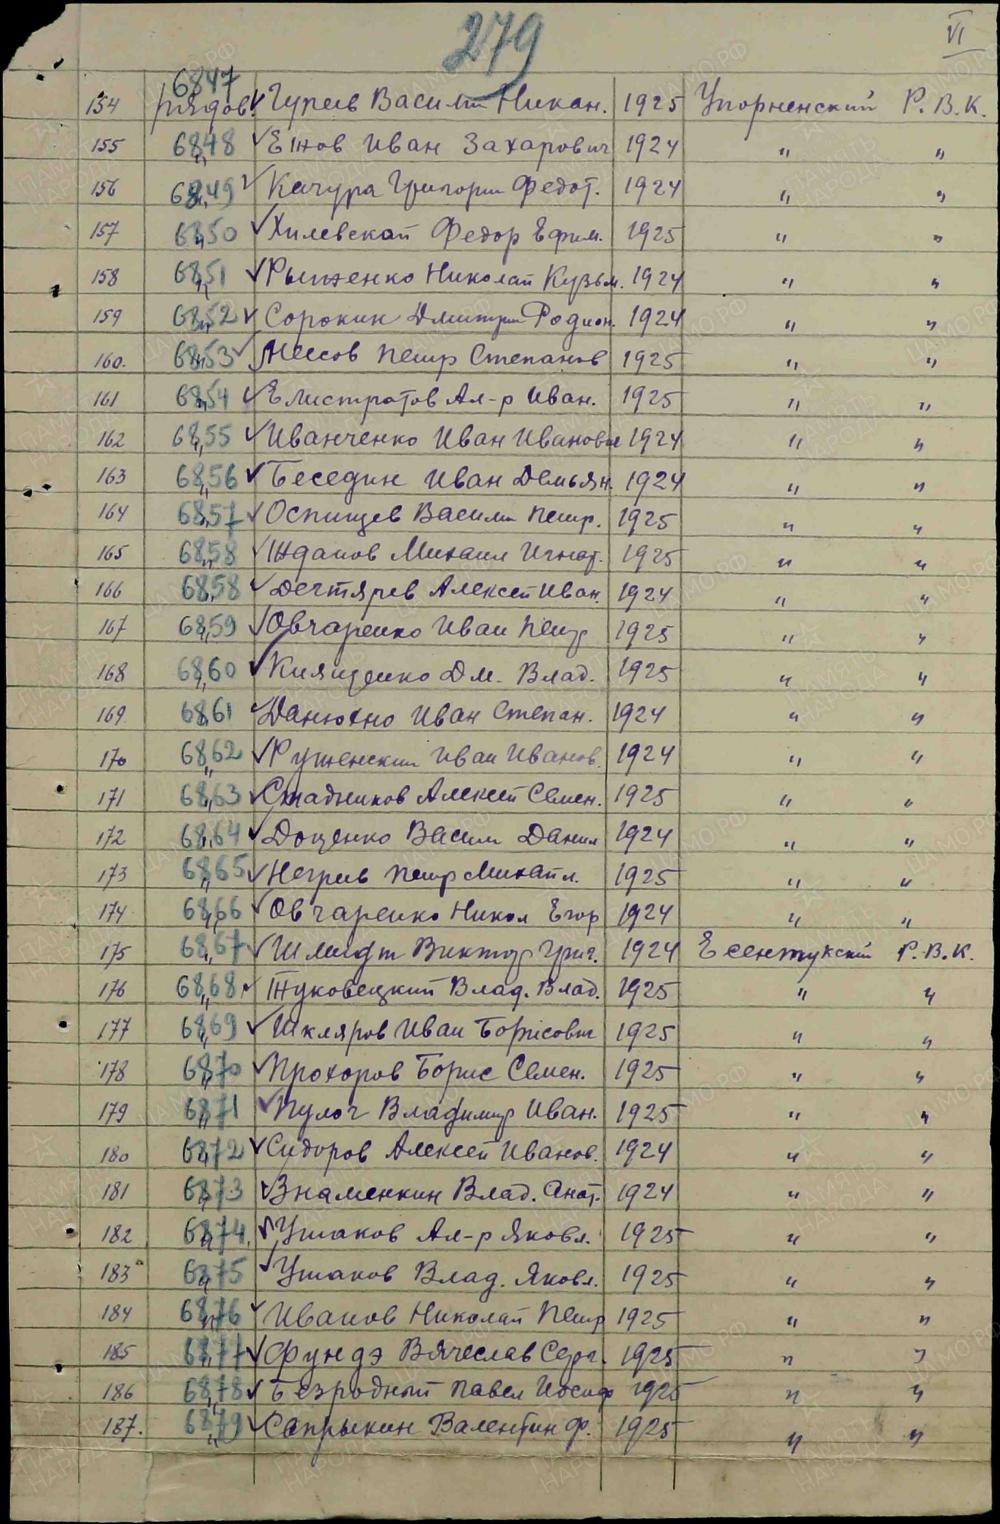 279
VI
6847
154 рядов. Гуреев Василий Никан. 1925 Упорненский Р.В.К.
155 6848 " Ежов Иван Захарович 1924 " "
156 6849 " Качура Григорий Федот. 1924 " "
157 6850 " Хилевский Федор Ефим. 1925 " "
158 6851 " Рыженко Николай Кузьм. 1924 " "
159 6852 " Сорокин Дмитрий Родион. 1924 " "
160. 6853 " Петр Степанов 1925 " "
161 6854 " Елистратов Ал-р Иван. 1925 " "
162 6855 " Иванченко Иван Иванович 1924 " "
163 6856 " Беседин Иван Демьян. 1924 " "
164 6857 " Оспищев Василий Петр. 1925 " "
165 6858 " Жданов Михаил Игнат. 1925 " "
166 6858 " Дегтярев Алексей Иван. 1924 " "
167 6859 " Овчаренко Иван Петр 1925 " "
168 6860 " Кнященко Дм. Влад. 1925 " "
169 6861 Данюхно Иван Степан. 1924 " "
170 6862 " Руженский Иван Иванов. 1924 " "
171 6863 " Стадников Алексей Семен. 1925 " "
172 6864 " Доценко Васили Данил 1924 " "
173 6865 " Негреев Петр Михайл. 1925 " "
174 6866 " Овчаренко Никол Егор 1924 " "
175 6867 " Шмидт Виктор Григ. 1924 Есентукский Р.В.К.
176 6868 " Жуковецкий Влад. Влад. 1925 " "
177 6869 " Шкляров Иван Борисович 1925 " "
178 6870 " Прохоров Борис Семен. 1925 " "
179 6871 " Пулог Владимир Иван. 1925 " "
180 6872 " Сидоров Алексей Иванов. 1924 " "
181 6873 " Знаменкин Влад. Анат. 1924 " "
182 6874 " Ушаков Ал-р Яковл. 1925 " "
183 6875 " Ушаков Влад. Яковл. 1925 " "
184 6876 " Иванов Николай Петр 1925 " "
185 6877 " Фундэ Вячеслав Серг. 1925 " "
186 6878 " Безродный Павел Иосиф 1925 " "
187. 6879 " Сапрыкин Валентин Ф. 1925 " "